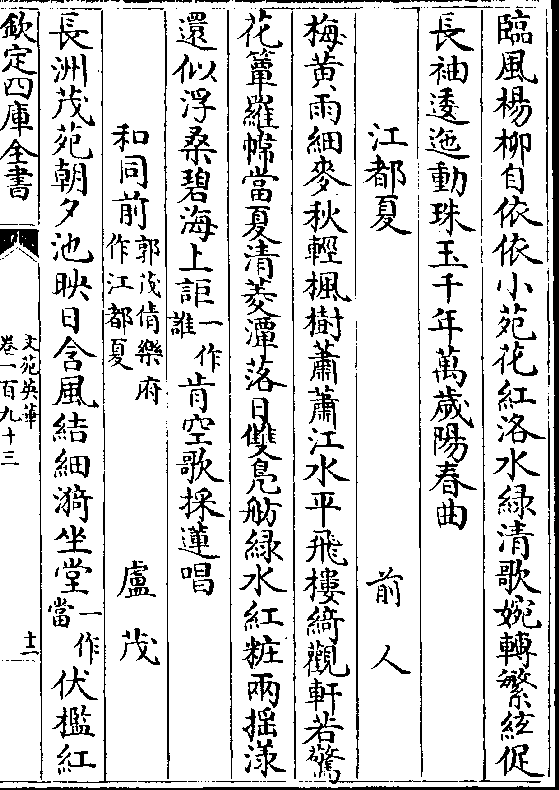 臨風楊柳自依依小苑花紅洛水綠清歌婉轉繁絃促
長袖逶迤動珠玉千年萬歲陽春曲
江都夏 前人
梅黃雨細麥秋輕楓樹蕭蕭江水平飛樓綺觀軒若驚
花簟羅幃當夏清菱潭落日雙鳧舫綠水紅粧兩揺漾
還似浮桑碧海上詎一作誰肯空歌採蓮唱
和同前郭茂倩樂府作江都夏 盧茂
長洲茂苑朝夕池映日含風結細漪坐堂一作當伏檻紅
欽定四庫全書
文苑英華
卷一百九十三
十二